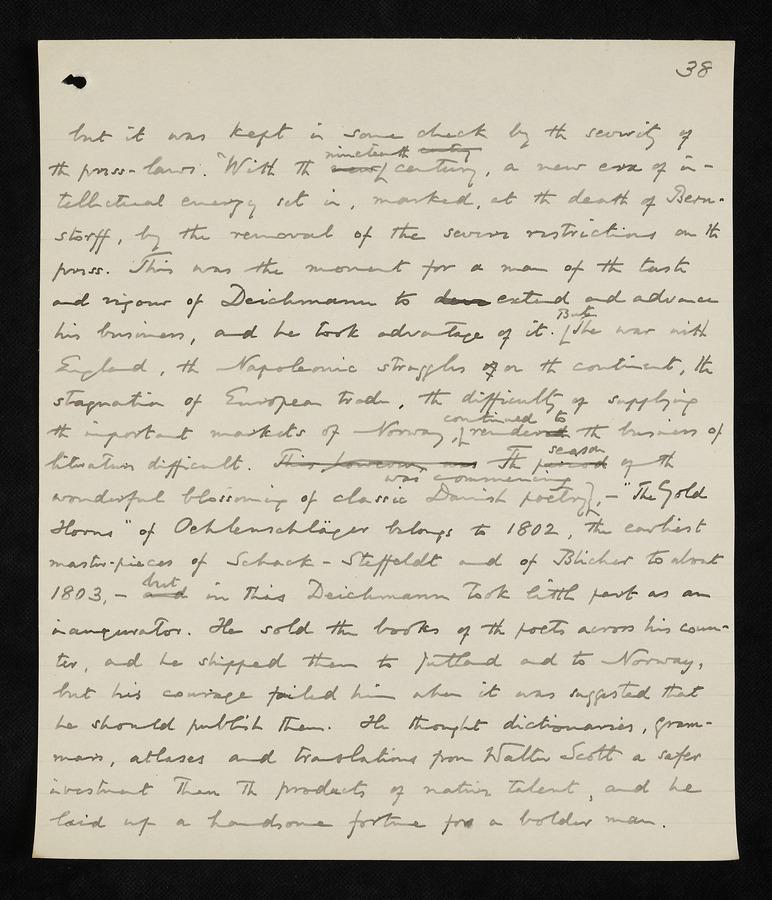 38
but it was kept in some check by the severity of
the press-laws. With the new nineteenth century century, a new era of in-
tellectual energy set in, marked, at the death of Bern-
storff, by the removal of the severer restrictions on the
press. This was the moment for a man of the tastes
and vigour of Deichmann to extend and advance
his business, and he took advantage of it. But the war with
England, the Napoleonic struggles of on the continent, the
stagnation of European trade, the difficulty of supplying
the important markets of Norway, continued to rendered the business of
literature difficult. This however was The period season of the
wonderful blossoming of classic Danish poetry was commencing, – "The Gold
Horns" of Oehlenschläger belongs to 1802, the earliest
master-pieces of Schack-Staffeldt and of Blicher to about
1803, – and but in this Deichmann took little part as an
inaugurator. He sold the books of the poets across his coun-
ter, and he shipped them to Jutland and to Norway,
but his courage failed him when it was suggested that
he should publish them. He thought dictionaries, gram-
mars, atlases and translations from Walter Scott a safer
investment than the products of native talent, and he
laid up a handsome fortune for a bolder man.